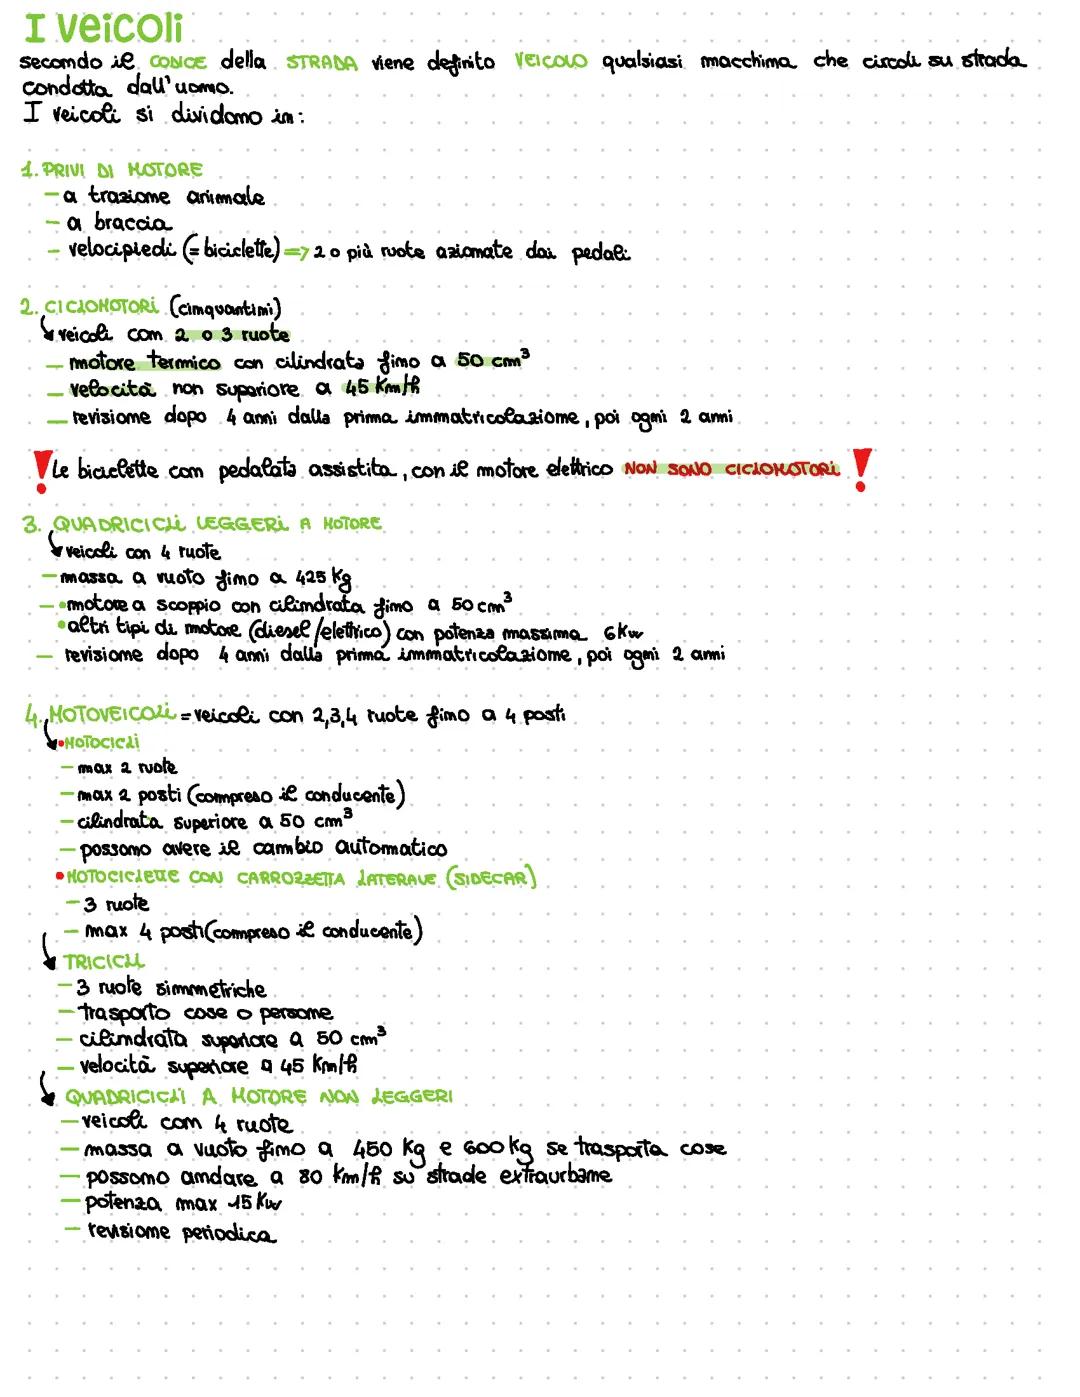 I veicoli
secondo il CODICE della STRADA viene definito VEICOLO qualsiasi macchina che circoli su strada
condotta dall'uomo.
I veicoli si dividono in:
1. PRIVI DI MOTORE
- a trazione animale
- a braccia
- velocipiedi (= biciclette) => 2 o più ruote azionate dai pedali
2. CICLOMOTORI (cinquantini)
veicoli con 2 o 3 ruote
- motore termico con cilindrata fino a 50 cm³
- velocità non superiore a 45 Km/h
- revisione dopo 4 anni dalla prima immatricolazione, poi ogni 2 anni
! Le biciclette con pedalata assistita, con il motore elettrico NON SONO CICLOMOTORI !
3. QUADRICICLI LEGGERI A MOTORE
veicoli con 4 ruote
- massa a vuoto fino a 425 Kg
- • motore a scoppio con cilindrata fino a 50 cm³
• altri tipi di motore (diesel/elettrico) con potenza massima 6Kw
- revisione dopo 4 anni dalla prima immatricolazione, poi ogni 2 anni
4. MOTOVEICOLI = veicoli con 2,3,4 ruote fino a 4 posti
• MOTOCICLI
- max 2 ruote
- max 2 posti (compreso il conducente)
- cilindrata superiore a 50 cm³
- possono avere il cambio automatico
• MOTOCICLETTE CON CARROZZETTA LATERALE (SIDECAR)
- 3 ruote
- max 4 posti (compreso il conducente)
TRICICLI
- 3 ruote simmetriche
- trasporto cose o persone
- cilindrata superiore a 50 cm³
- velocità superiore a 45 Km/h
QUADRICICLI A MOTORE NON LEGGERI
- veicoli con 4 ruote
- massa a vuoto fino a 450 Kg e 600 kg se trasporta cose
- possono andare a 80 Km/h su strade extraurbane
- potenza max 15 Kw
- revisione periodica